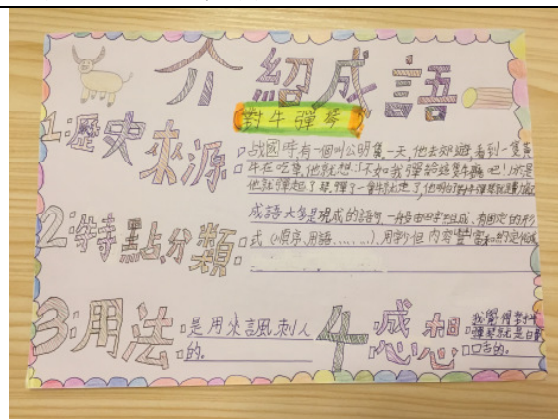 介紹成語
對牛彈琴
1:歷史來源
战國時有一個叫公明儀一天,他去郊遊,看到一隻黃
牛在吃草,他就想:「不如我彈給這隻牛聽吧!」於是
他就彈起了琴,彈了一會牛就走了,他明白對牛彈琴
2:特點分類
成語大多是現成的語句,一般由四字組成、有固定的形
式(順序、用語……)、用字少但內容豐富和約定俗成
3:用法
是用來諷刺人
的。
4感想
我覺得對牛
彈琴就是白費
口舌的。